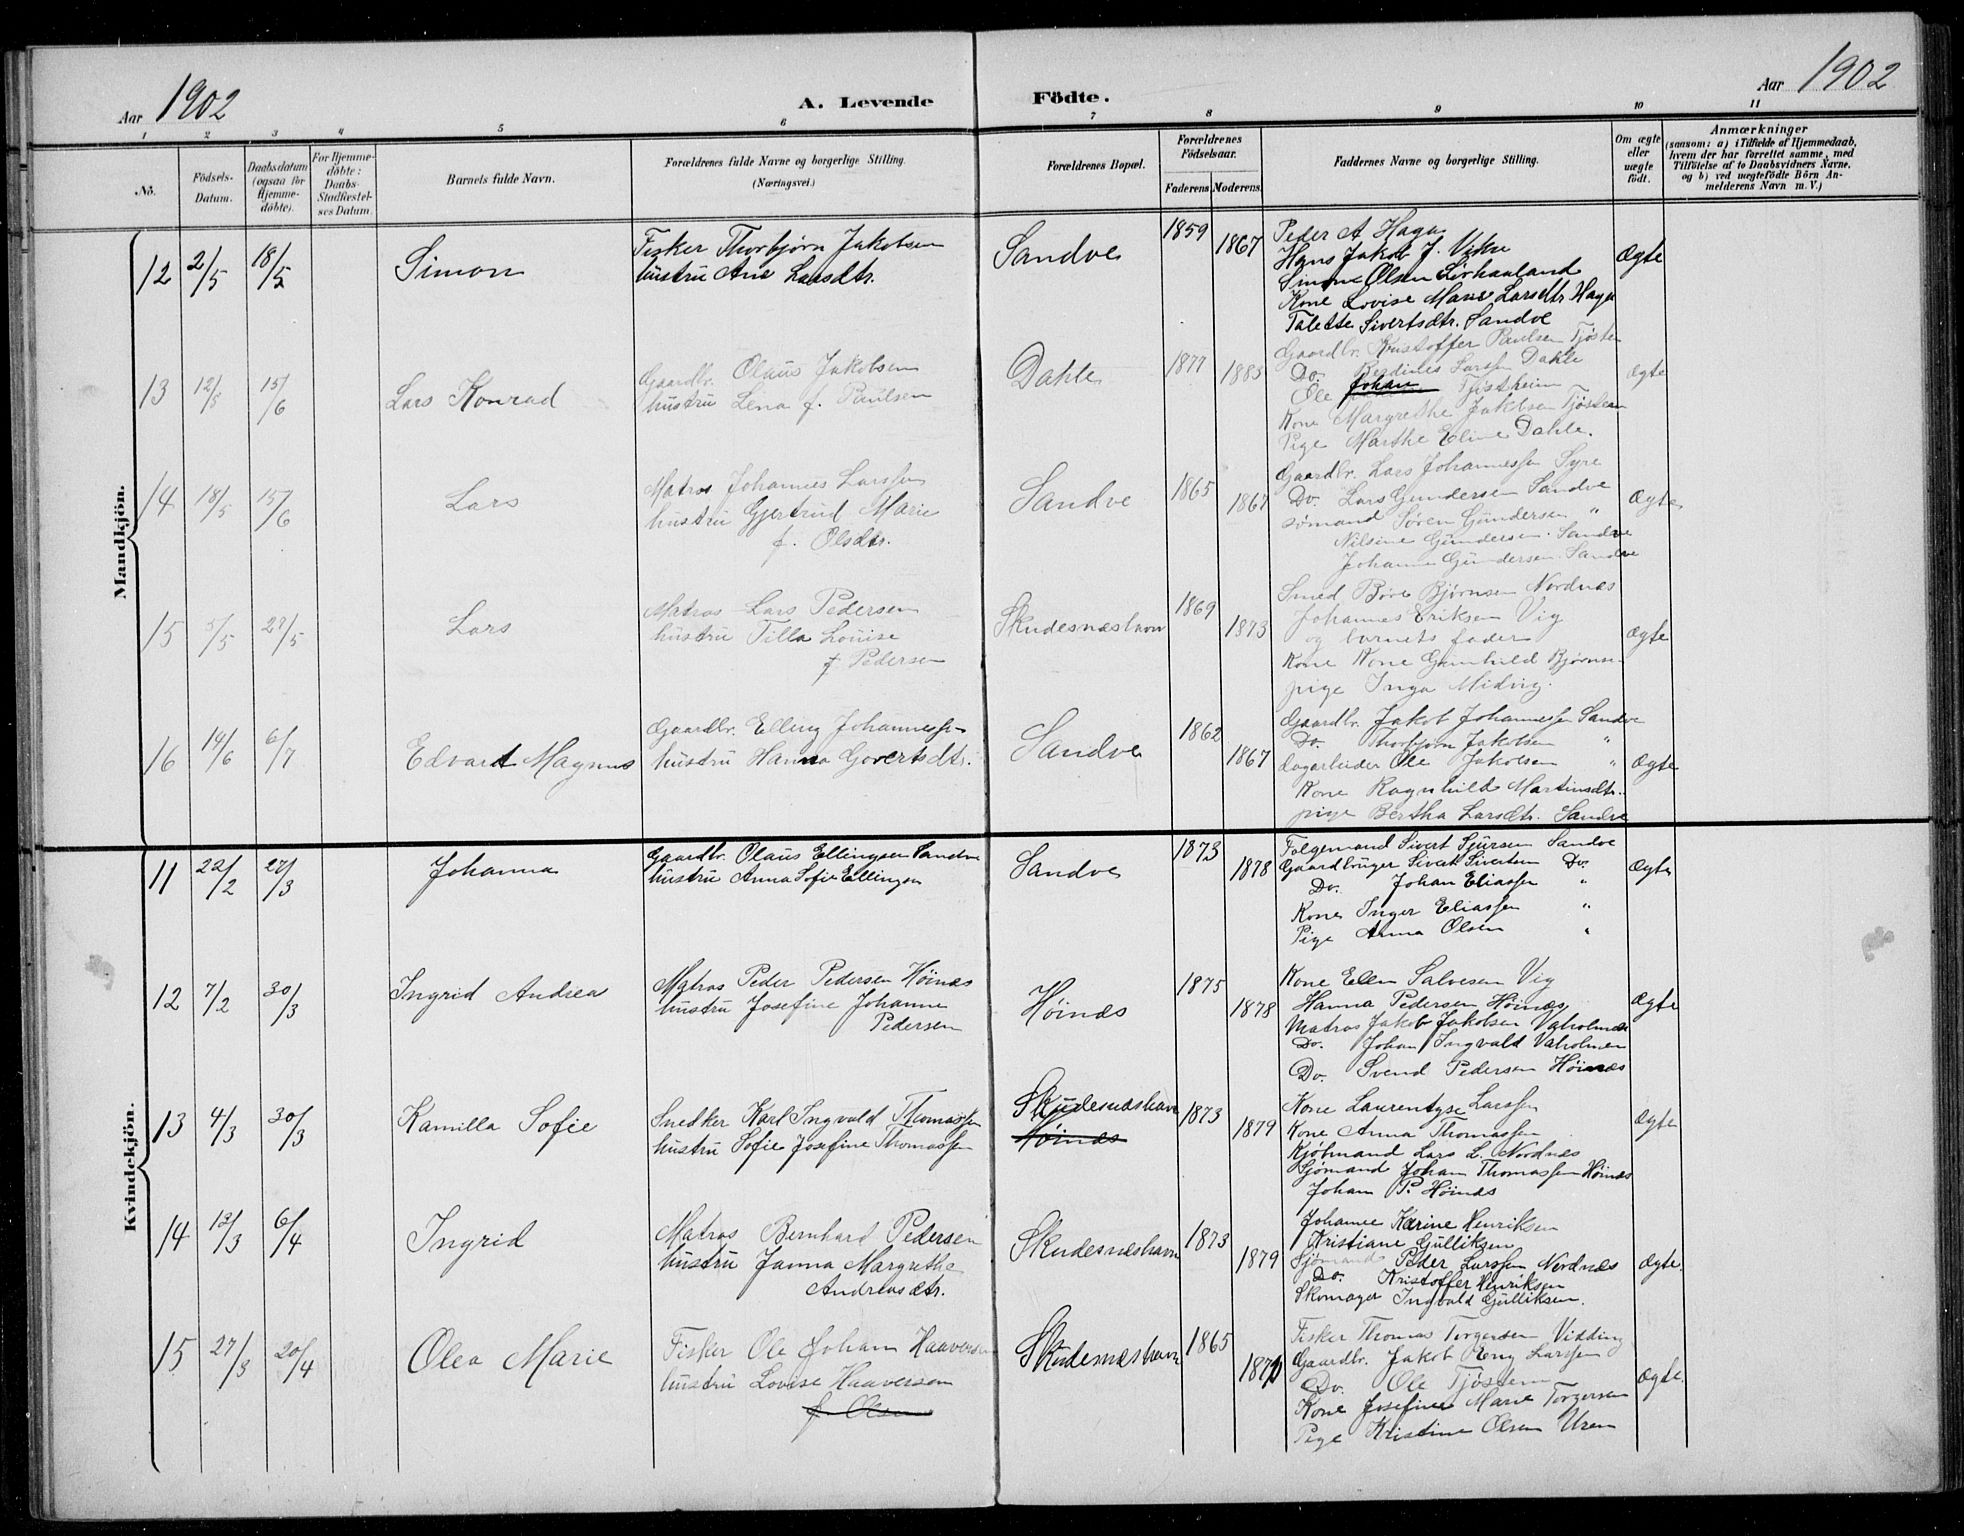 Aar 1902
A. Levende Födte.
Aar 1902
1 2 3 4 5 6 7 8 9 10 11
No.
Födsels-Datum.
Daabsdatum (ogsaa for Hjemmedöbte).
For Hjemmedöbte: Daabs-Stadfæstelses Datum.
Barnets fulde Navn.
Forældrenes fulde Navne og borgerlige Stilling. (Næringsvei.)
Forældrenes Bopæl.
Forældrenes Födselsaar.
Faderens. Moderens.
Faddernes Navne og borgerlige Stilling.
Om ægte eller uægte födt.
Anmærkninger
(saasom: a) i Tilfælde af Hjemmedaab, hvem der har forrettet samme, med Tilföielse af to Daabsvidners Navne, og b) ved uægtefödte Börn Anmelderens Navn m. V.)
Mandkjön.
12 2/5 18/5 Simon
Fisker Thorbjörn Jakobsen
hustru Ane Larsdtr.
Sandve 1859 1867
Peder A Haga
Hans Jakob J. Vikre
Simon Olsen Lirhaaland
Kone Lovise Marie Larsdtr. Haga
Talette Sivertsdtr. Sandve
Ægte
13 12/5 15/6 Lars Konrad
Gaardbr. Olaus Jakobsen
hustru Lena f. Paulsen
Dahle 1877 1885
Gaardbr. Kristoffer Paulsen Tjösten
Do. Larsen Dahle
Ole Johan
Kone Margrethe Jakobsen Tjösten
Pige Marthe Eline Dahle.
Ægte
14 18/5 15/6 Lars
Matros Johannes Larssen
hustru Gjertrud Marie
f. Olsdtr.
Sandve 1865 1867
Gaardbr. Lars Johannessen Syre
Do. Lars Gundersen Sandve
sömand Sören Gundersen "
Nilsine Gundersen. Sandve
Johanne Gundersen. Sandve
Ægte
15 5/5 28/5 Lars
Matros Lars Pedersen
hustru Tilla Louise
f. Pedersen
Skudesnæshavn 1869 1873
Smed Böre Bjørnsen Nordnæs
Johannes Eriksen Vig
og barnets fader
Kone Kone Gunhild Bjørnse
pige Inga Midvig.
Ægte
16 14/6 6/7 Edvart Magnus
Gaardbr. Elling Johannessen
hustru Hanna Govertsdtr.
Sandve 1862 1867
Gaardbr. Jakob Johannessen Sandve
Do. Thorbjørn Jakobsen "
Dagarbeider Ole Jakobsen "
Kone Ragnhild Martinsdtr.
pige Bertha Larsdtr. Sandve
Ægte
Kvindekjön.
11 22/2 27/3 Johanna
Gaardbr. Olaus Ellingsen Sandve
hustru Anna Sofie Ellingsen
Sandve 1873 1878
Folgemand Sivert Sjursen Sandve
Gaardbruger Sivert Sivertsen Do.
Do. Johan Eliassen "
Kone Inger Eliassen "
Pige Anna Olsen "
Ægte
12 7/2 30/3 Ingrid Andrea
Matros Peder Pedersen Höinæs
hustru Josefine Johanne
Pedersen
Höinæs 1875 1878
Kone Ellen Salvesen Vig
Hanna Pedersen Höinæs
Matros Jakob Jakobsen Vaholmen
Do. Johan Ingvald Vaholmen
Do. Svend Pedersen Höinæs
Ægte
13 4/3 30/3 Kamilla Sofie
Snedker Karl Ingvald Thomassen
hustru Sofie Josefine Thomassen
Skudesnæshavn
Höinæs
1873 1879
Kone Laurentyse Larssen
Kone Anna Thomassen
Kjöbmand Lars L. Nordnæs
Sjömand Johan Thomassen Höinæs
Johan P. Höinæs
Ægte
14 13/3 6/4 Ingrid
Matros Bernhard Pedersen
hustru Janna Margrethe
Andreasdtr.
Skudesnæshavn 1873 1879
Johanne Karine Henriksen
Kristiane Gulliksen
Sjömand Peder Larssen Nordnæs
Do. Kristoffer Henriksen
Skomager Ingvald Gulliksen.
Ægte.
15 27/3 20/4 Olea Marie
Fisker Ole Johan Haaversen
hustru Lovise Haaversen
f. Olsen
Skudesnæshavn 1865
Fisker Thomas Torgersen Vidding
Gaardbr. Jakob Larssen
Do. Ole Tjösten
Kone Josefine Marie Torgersen
Pige Kristine Olsen Uren
Ægte.